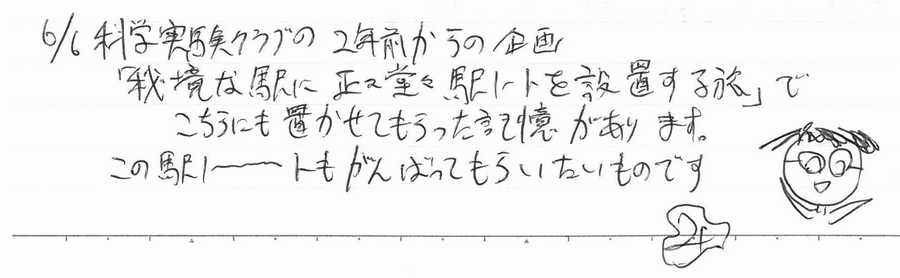 6/6 科学実験クラブの 2年前からの企画
「秘境な駅に 正々堂々 駅ノートを設置する旅」で
こちらにも置かせてもらった記憶があります。
この駅ノ〜〜トもがんばってもらいたいものです